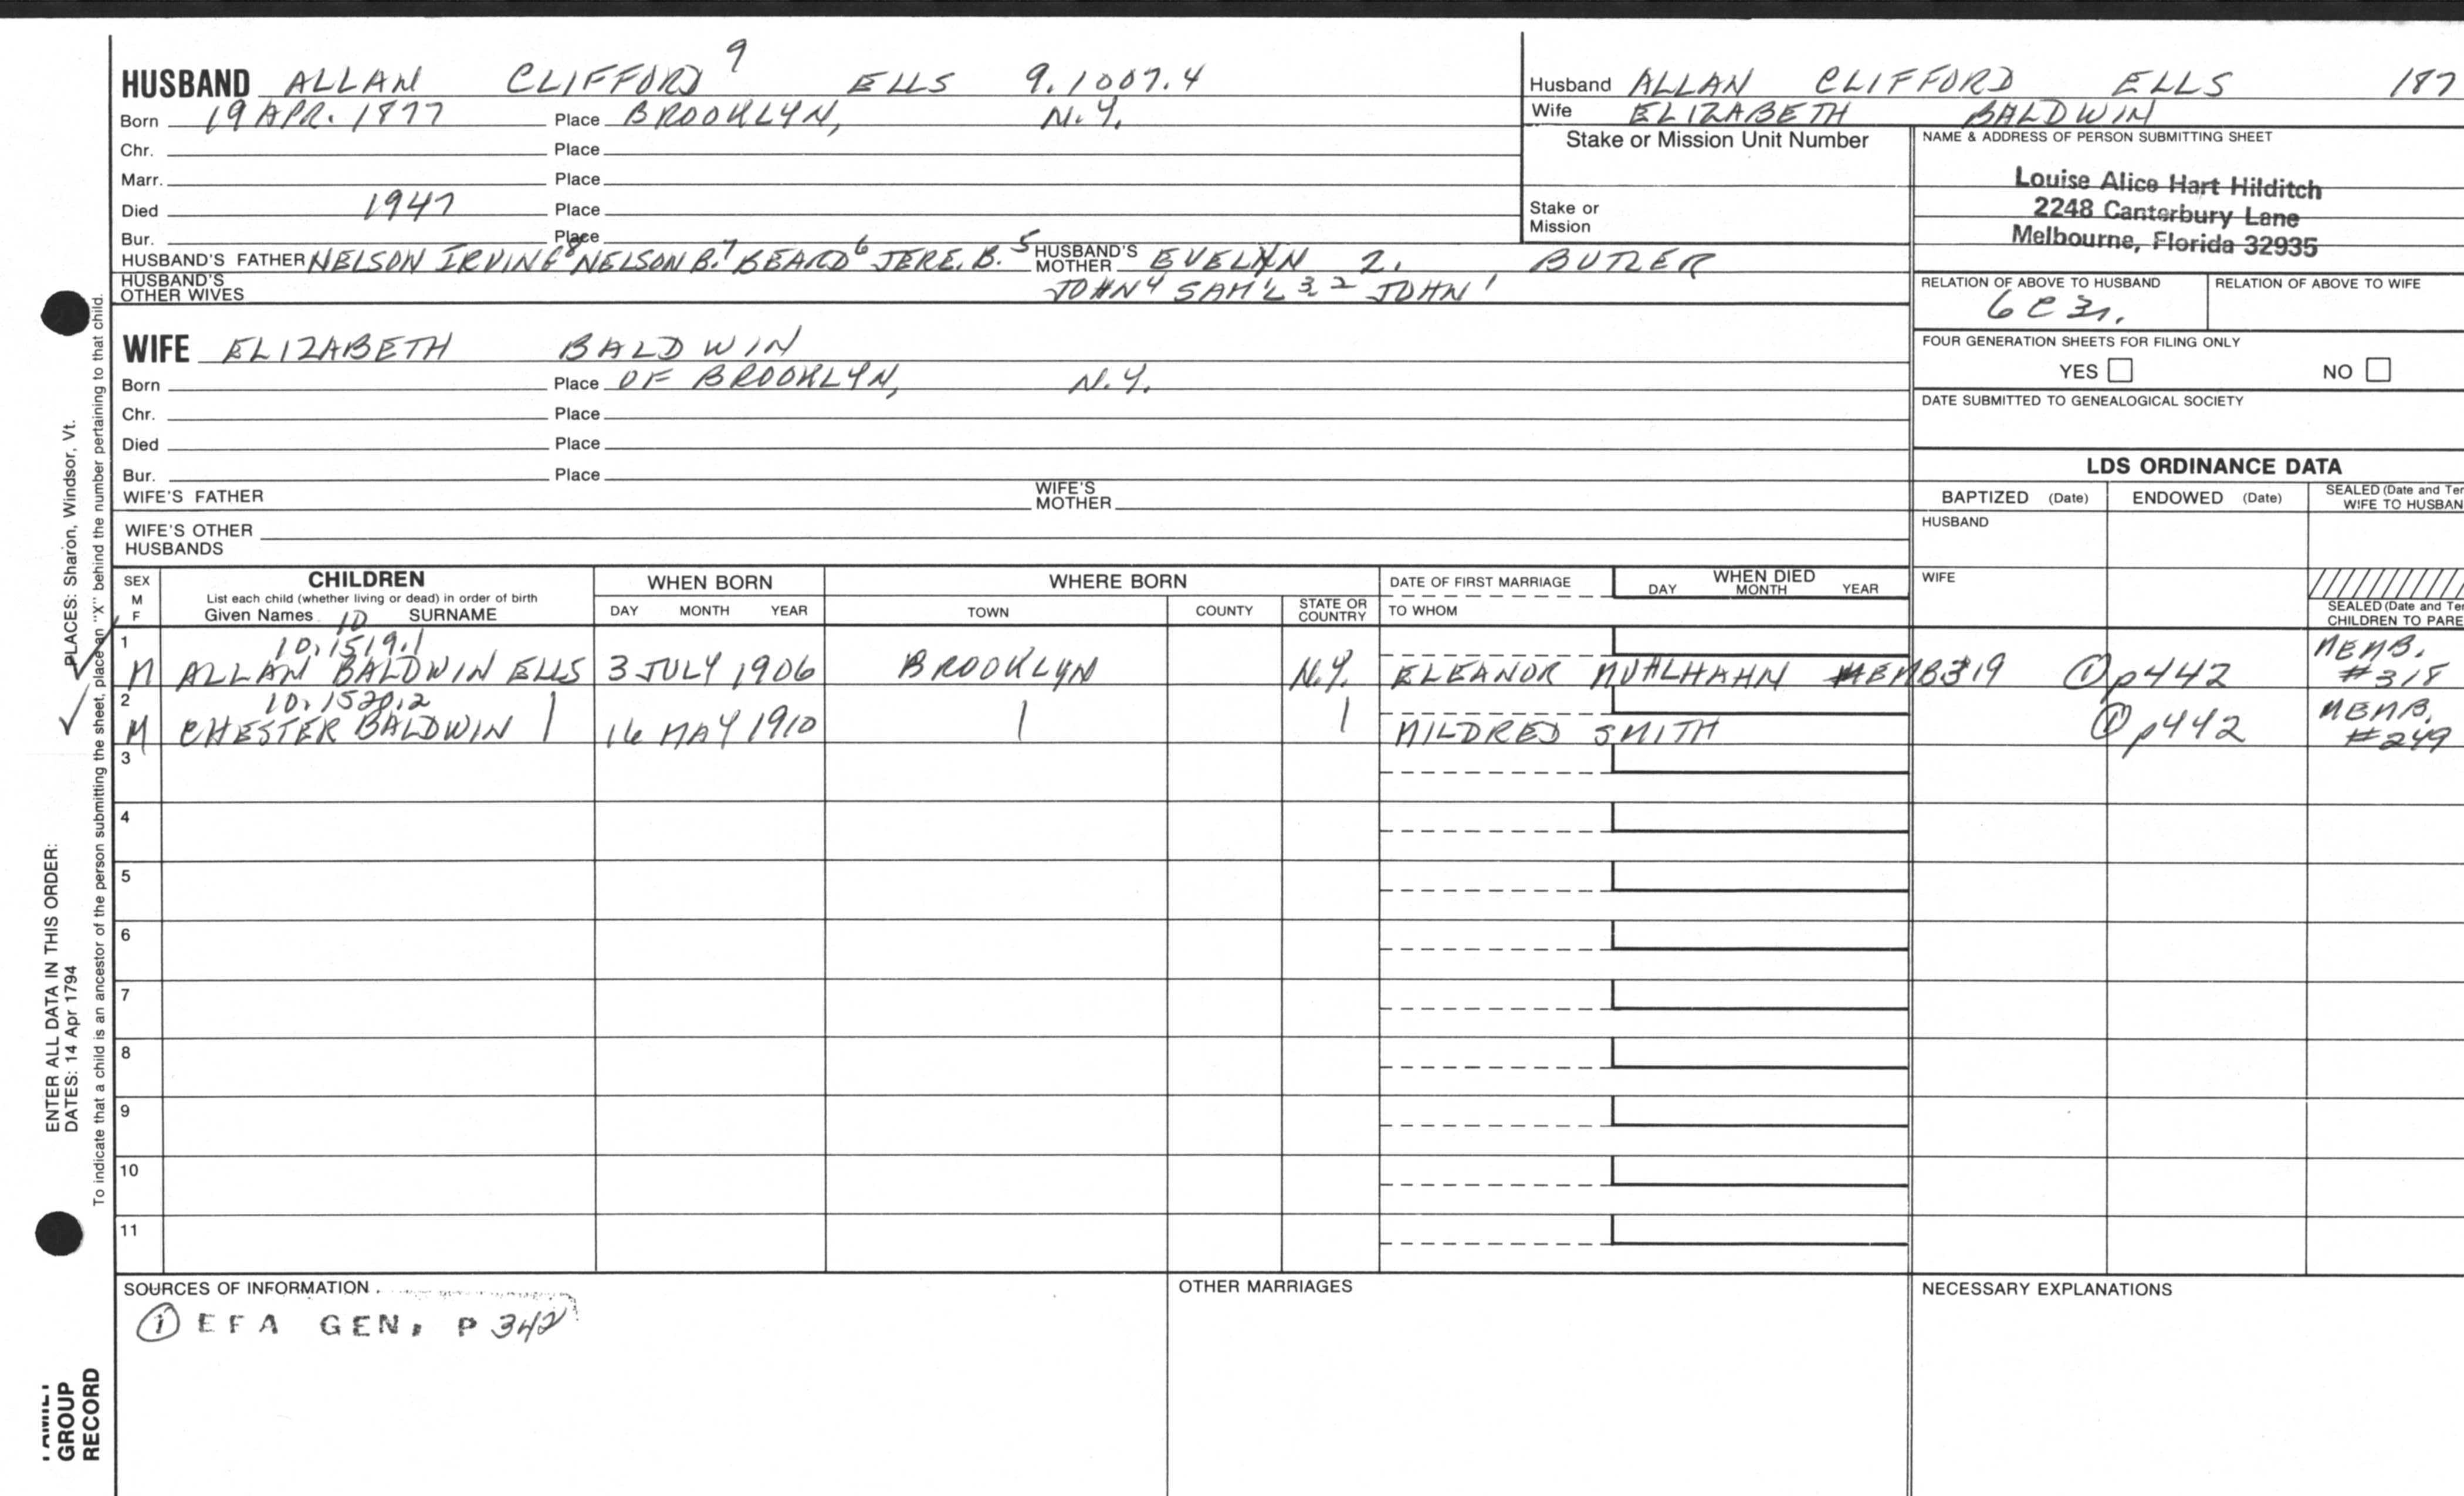 HUSBAND ALLAN CLIFFORD 9 ELLS 9.1007.4
Born 19 APR. 1877 Place BROOKLYN, N.Y.
Chr. Place
Marr. Place
Died 1947 Place
Bur. Place
HUSBAND'S FATHER NELSON IRVING 8 NELSON B. 7 BEARD 6 JERE. B. 5 HUSBAND'S MOTHER EVELYN BUTLER
HUSBAND'S OTHER WIVES JOHN 4 SAM'L 3 2 JOHN 1
WIFE ELIZABETH BALDWIN
Born Place OF BROOKLYN, N.Y.
Chr. Place
Died Place
Bur. Place
WIFE'S FATHER WIFE'S MOTHER
WIFE'S OTHER HUSBANDS
Husband ALLAN CLIFFORD ELLS 187
Wife ELIZABETH BALDWIN
Stake or Mission Unit Number
Stake or
Mission
NAME & ADDRESS OF PERSON SUBMITTING SHEET
Louise Alice Hart Hilditch
2248 Canterbury Lane
Melbourne, Florida 32935
RELATION OF ABOVE TO HUSBAND RELATION OF ABOVE TO WIFE
FOUR GENERATION SHEETS FOR FILING ONLY
YES NO
DATE SUBMITTED TO GENEALOGICAL SOCIETY
LDS ORDINANCE DATA
BAPTIZED (Date) ENDOWED (Date) SEALED (Date and Tem
WIFE TO HUSBAN
HUSBAND
WIFE
SEALED (Date and Tem
CHILDREN TO PARE
SEX
M
F
CHILDREN
List each child (whether living or dead) in order of birth
Given Names 10 SURNAME
WHEN BORN
DAY MONTH YEAR
WHERE BORN
TOWN COUNTY STATE OR COUNTRY
DATE OF FIRST MARRIAGE
TO WHOM
WHEN DIED
DAY MONTH YEAR
1 10.1519.1
M ALLAN BALDWIN ELLS 3 JULY 1906 BROOKLYN N.Y. ELEANOR MUHLHAHN MEMB319 ① p442 MEMB. #318
2 10.1520.2
M CHESTER BALDWIN | 16 MAY 1910 | | MILDRED SMITH ① p442 MEMB. #249
3
4
5
6
7
8
9
10
11
SOURCES OF INFORMATION
① EFA GEN, P 342
OTHER MARRIAGES
NECESSARY EXPLANATIONS
ENTER ALL DATA IN THIS ORDER:
DATES: 14 Apr 1794
PLACES: Sharon, Windsor, Vt.
To indicate that a child is an ancestor of the person submitting the sheet, place an "X" behind the number pertaining to that child.
FAMILY
GROUP
RECORD